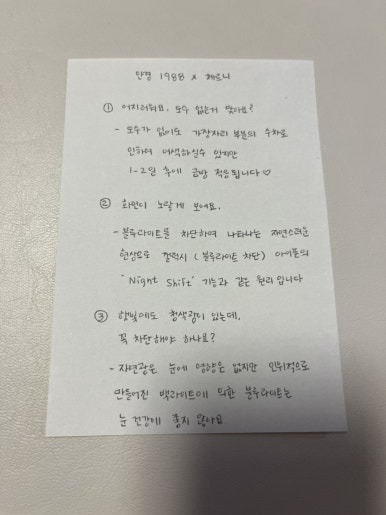 안경 1988 x 체르니
① 어지러워요. 도수 없는거 맞아요?
- 도수가 없어도 가장자리 부분의 수차로
인하여 어색하실수 있지만
1-2일 후에 금방 적응됩니다♡
② 화면이 노랗게 보여요.
- 블루라이트를 차단하여 나타나는 자연스러운
현상으로 갤럭시 (블루라이트 차단) 아이폰의
'Night Shift' 기능과 같은 원리입니다
③ 햇빛에도 청색광이 있는데,
꼭 차단해야 하나요?
- 자연광은 눈에 영향은 없지만 인위적으로
만들어진 백라이트에 의한 블루라이트는
눈 건강에 좋지 않아요